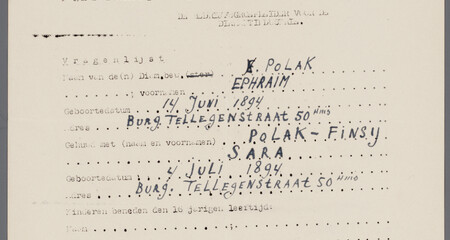 Vragenlijst
Naam van de(n) E. POLAK
; voornamen EPHRAIM
Geboortedatum 14 JUNI 1894
Adres BURG. TELLEGENSTRAAT 50 HUIS
Gehuwd met (naam en voornamen) POLAK - FINSIJ
SARA
Geboortedatum : 4 JULI 1894
Adres BURG. TELLEGENSTRAAT 50 HUIS
Kinderen beneden den 16 jarigen leeftijd:
Naam ;